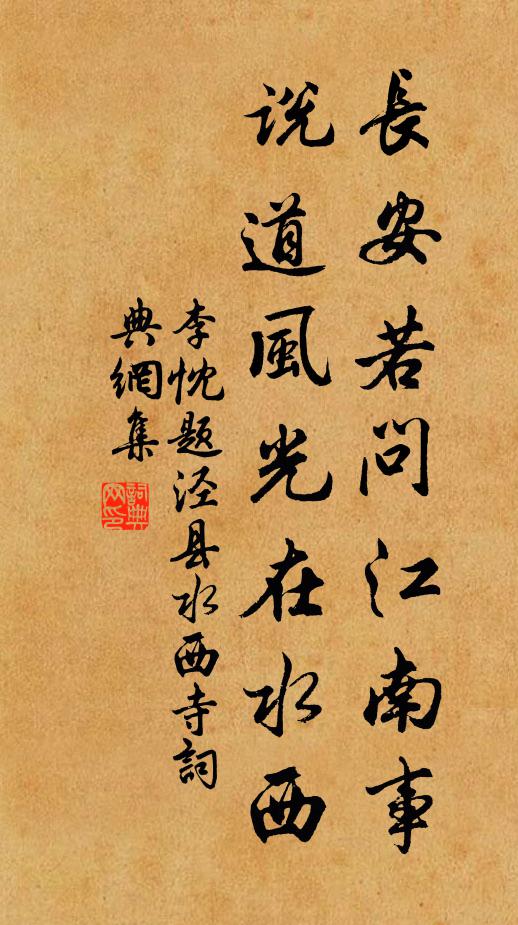 長安若問江南事
説道風光在水西
李忱题泾县水西寺詞
典網集
詞典
网印